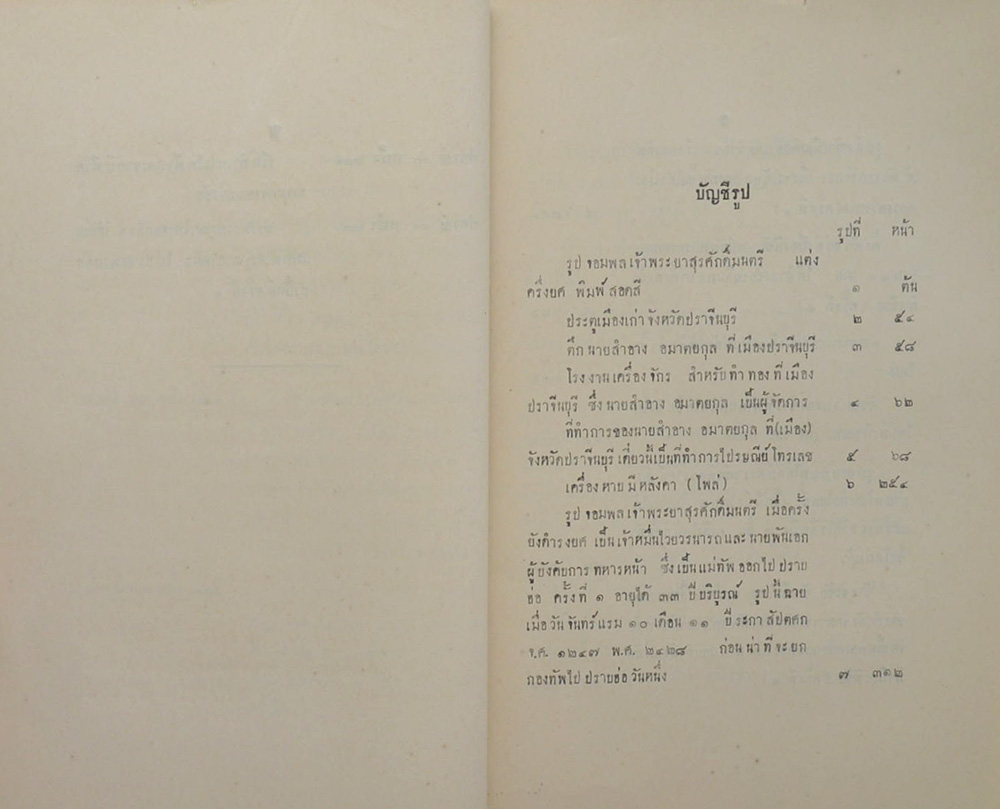 บัญชีรูป
รูปที่ หน้า
รูป จอมพล เจ้าพระยาสุรศักดิ์มนตรี แต่ง
ครึ่งยศ พิมพ์ สอดสี ๑ ต้น
ประตูเมืองเก่า จังหวัดปราจีนบุรี ๒ ๕๔
ตึก นายสำอาง อมาตยกุล ที่ เมืองปราจีนบุรี ๓ ๕๘
โรงงานเครื่องจักร สำหรับ ทำ ทอง ที่ เมือง
ปราจีนบุรี ซึ่ง นายสำอาง อมาตยกุล เป็นผู้ จัดการ ๔ ๖๒
ที่ทำการของนายสำอาง อมาตยกุล ที่(เมือง)
จังหวัดปราจีนบุรี เดี๋ยวนี้เป็นที่ทำการไปรษณีย์ โทรเลข ๕ ๖๘
เครื่อง หาย มี หลังคา ( ไพล่ ) ๖ ๒๕๔
รูป จอมพล เจ้าพระยาสุรศักดิ์มนตรี เมื่อครั้ง
ยังดำรงยศ เป็น เจ้าหมื่นไวยวรนารถ และ นายพันเอก
ผู้บังคับการ ทหารหน้า ซึ่ง เป็นแม่ทัพ ออกไป ปราบ
ฮ่อ ครั้งที่ ๑ อายุได้ ๓๓ ปีบริบูรณ์ รูป นี้ ฉาย
เมื่อ วัน จันทร์ แรม ๑๐ เดือน ๑๑ ปี ระกา สัปตศก
จ.ศ. ๑๒๔๗ พ.ศ. ๒๔๒๘ ก่อน น่า ที่ จะ ยก
กองทัพไป ปราบฮ่อ วันหนึ่ง ๗ ๓๑๒